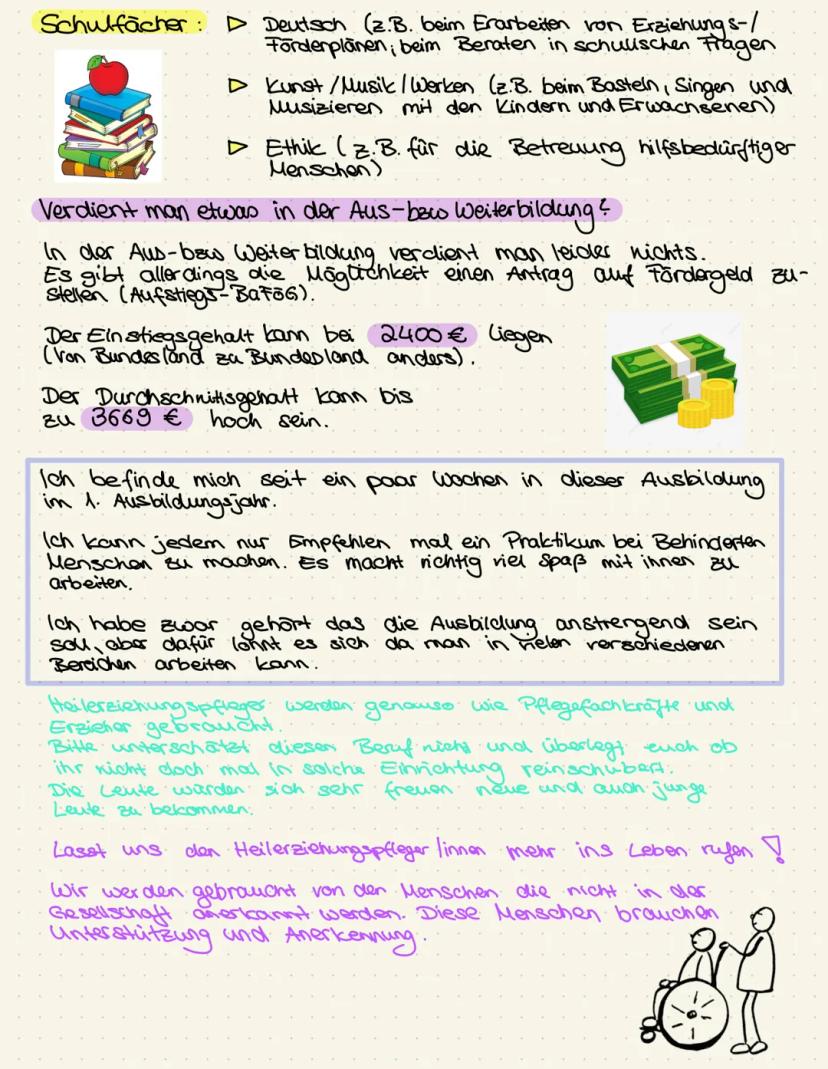 Schulfächer: ▷ Deutsch (z.B. beim Erarbeiten von Erziehungs-/
Förderplänen, beim Beraten in schulischen Fragen
▷ Kunst/Musik/Werken (z.B. beim Basteln, Singen und
Musizieren mit den Kindern und Erwachsenen)
▷ Ethik (z.B. für die Betreuung hilfsbedürftiger
Menschen)
Verdient man etwas in der Aus-bzw Weiterbildung?
In der Aus-bzw Weiterbildung verdient man leider nichts.
Es gibt allerdings die Möglichkeit einen Antrag auf Fördergeld zu-
stellen (Aufstiegs-BaföG).
Der Einstiegsgehalt kann bei 2400 € liegen
(Von Bundesland zu Bundesland anders).
Der Durchschnittsgehalt kann bis
zu 3669 € hoch sein.
Ich befinde mich seit ein paar Wochen in dieser Ausbildung
im 1. Ausbildungsjahr.
Ich kann jedem nur Empfehlen mal ein Praktikum bei Behinderten
Menschen zu machen. Es macht richtig viel Spaß mit ihnen zu
arbeiten.
Ich habe zwar gehört das die Ausbildung anstrengend sein
soll, aber dafür lohnt es sich da man in vielen verschiedenen
Bereichen arbeiten kann.
Heilerziehungspfleger werden genauso wie Pflegefachkräfte und
Erzieher gebraucht.
Bitte unterschätzt diesen Beruf nicht und überlegt euch ob
ihr nicht doch mal in solche Einrichtung reinschubert.
Die Leute würden sich sehr freuen neue und auch junge
Leute zu bekommen.
Lasst uns den Heilerziehungspfleger/innen mehr ins Leben rufen!
Wir werden gebraucht von den Menschen die nicht in der
Gesellschaft anerkannt werden. Diese Menschen brauchen
Unterstützung und Anerkennung.